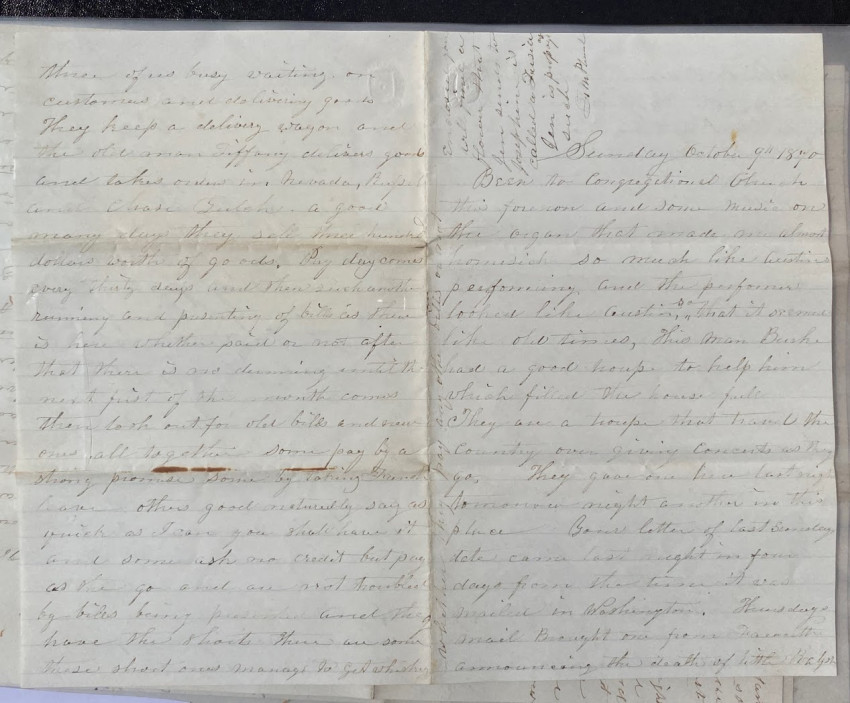 three of us busy waiting on
customers and delivering goods
They keep a delivery wagon and
the old man Tiffany delivers goods
and takes orders in Nevada,
and Chase Gulch a good
many days they sell three hundred
dollars worth of goods. Pay day comes
every thirty days and then such another
running and presenting of bills as there
is here whether paid or not after
that there is no dunning until the
next first of the month comes
then look out for old bills and new
ones all together some pay by a
strong promise some by taking French
leave others good naturedly say as
quick as I can you shall have it
and some ask no credit but pay
as the go and are not troubled
by bills being presented and they
have the shorts there are some
these short ones manage to get whiskey
whether they pay any other bills or not
Sunday October 9th 1870
Been to Congregational Church
this forenoon and some music on
the organ that made me almost
homesick so much like Austin
performing and the performer
looked like Austin, so that it seemed
like old times, This man Burke
had a good troupe to help him
which filled the house full
They are a troupe that travel the
Country over giving Concerts as they
go. They gave one here last night
tomorrow night another in this
place Your letter of last Sunday
date came last night in four
days from the time it was
mailed in Washington. Thursdays
mail Brought one from
announcing the death of little